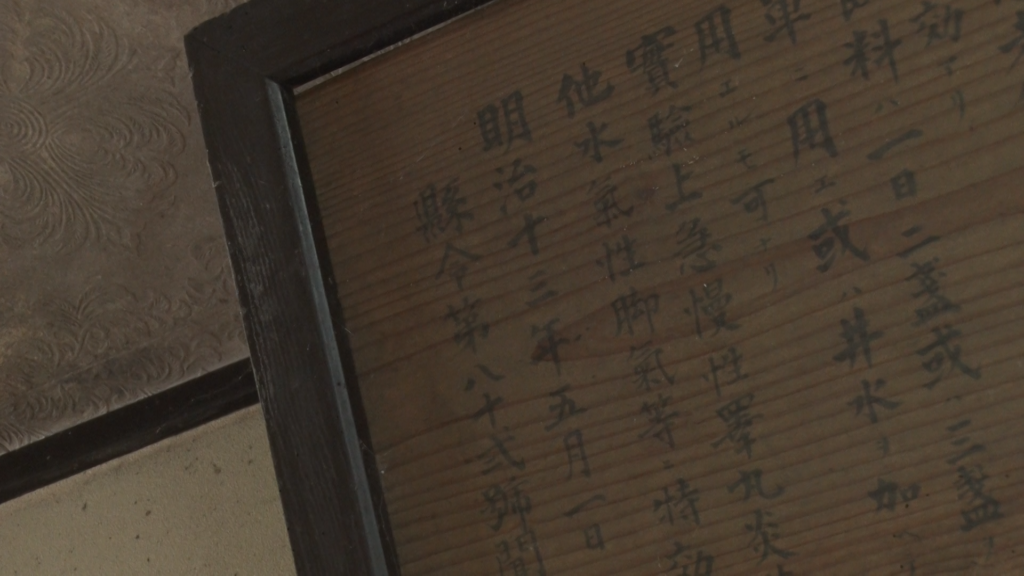 効アリ
料ハ一日二盞或三盞ヲ
單ニ用エ或ハ井水ヲ加ヘ
用エルモ可ナリ
實驗上急慢性睪丸炎
他水氣性脚氣等ニ特効
明治十三年五月一日
縣令第八十弐號聞